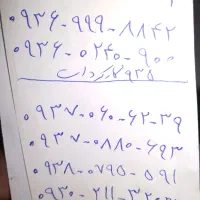 ۰۹۳۶-۹۹۹-۸۸۴۲
۰۹۳۶-۰۲۴۰-۹۰۰
۹۳۵
۰۹۳۷-۰۶۰-۶۲-۳۹
۰۹۳۷-۰۸۸۰-۶۹۳
۰۹۳۸-۰۷۹۵-۵۹۱
۰۹۳۰-۲۱۱-